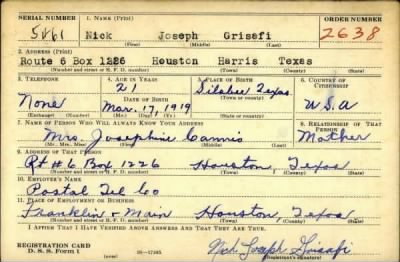 SERIAL NUMBER 1. NAME (Print) ORDER NUMBER
5861 Nick Joseph Grisafi 2638
(First) (Middle) (Last)
2. ADDRESS (Print)
Route 6 Box 1226 Houston Harris Texas
(Number and street or R. F. D. number) (Town) (County) (State)
3. TELEPHONE 4. AGE IN YEARS 5. PLACE OF BIRTH 6. COUNTRY OF CITIZENSHIP
21 Silsbee Texas
DATE OF BIRTH (Town or county)
None Mar. 17, 1919 U.S.A
(Exchange) (Number) (Mo.) (Day) (Yr.) (State or country)
7. NAME OF PERSON WHO WILL ALWAYS KNOW YOUR ADDRESS 8. RELATIONSHIP OF THAT PERSON
Mrs. Josephine Mother
(Mr., Mrs., Miss) (First) (Middle) (Last)
9. ADDRESS OF THAT PERSON
Rt #6 Box 1226 Houston, Texas
(Number and street or R. F. D. number) (Town) (County) (State)
10. EMPLOYER'S NAME
Postal Tel Co
11. PLACE OF EMPLOYMENT OR BUSINESS
Franklin & Main Houston, Texas
(Number and street or R. F. D. number) (Town) (County) (State)
I AFFIRM THAT I HAVE VERIFIED ABOVE ANSWERS AND THAT THEY ARE TRUE.
REGISTRATION CARD
D. S. S. Form 1 (over) Nick Joseph Grisafi
(Registrant's signature)